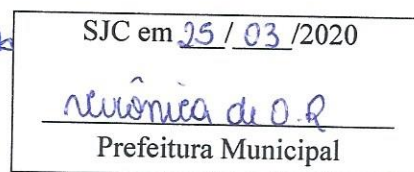 SJC em 25/03/2020
verônica de O.R
Prefeitura Municipal